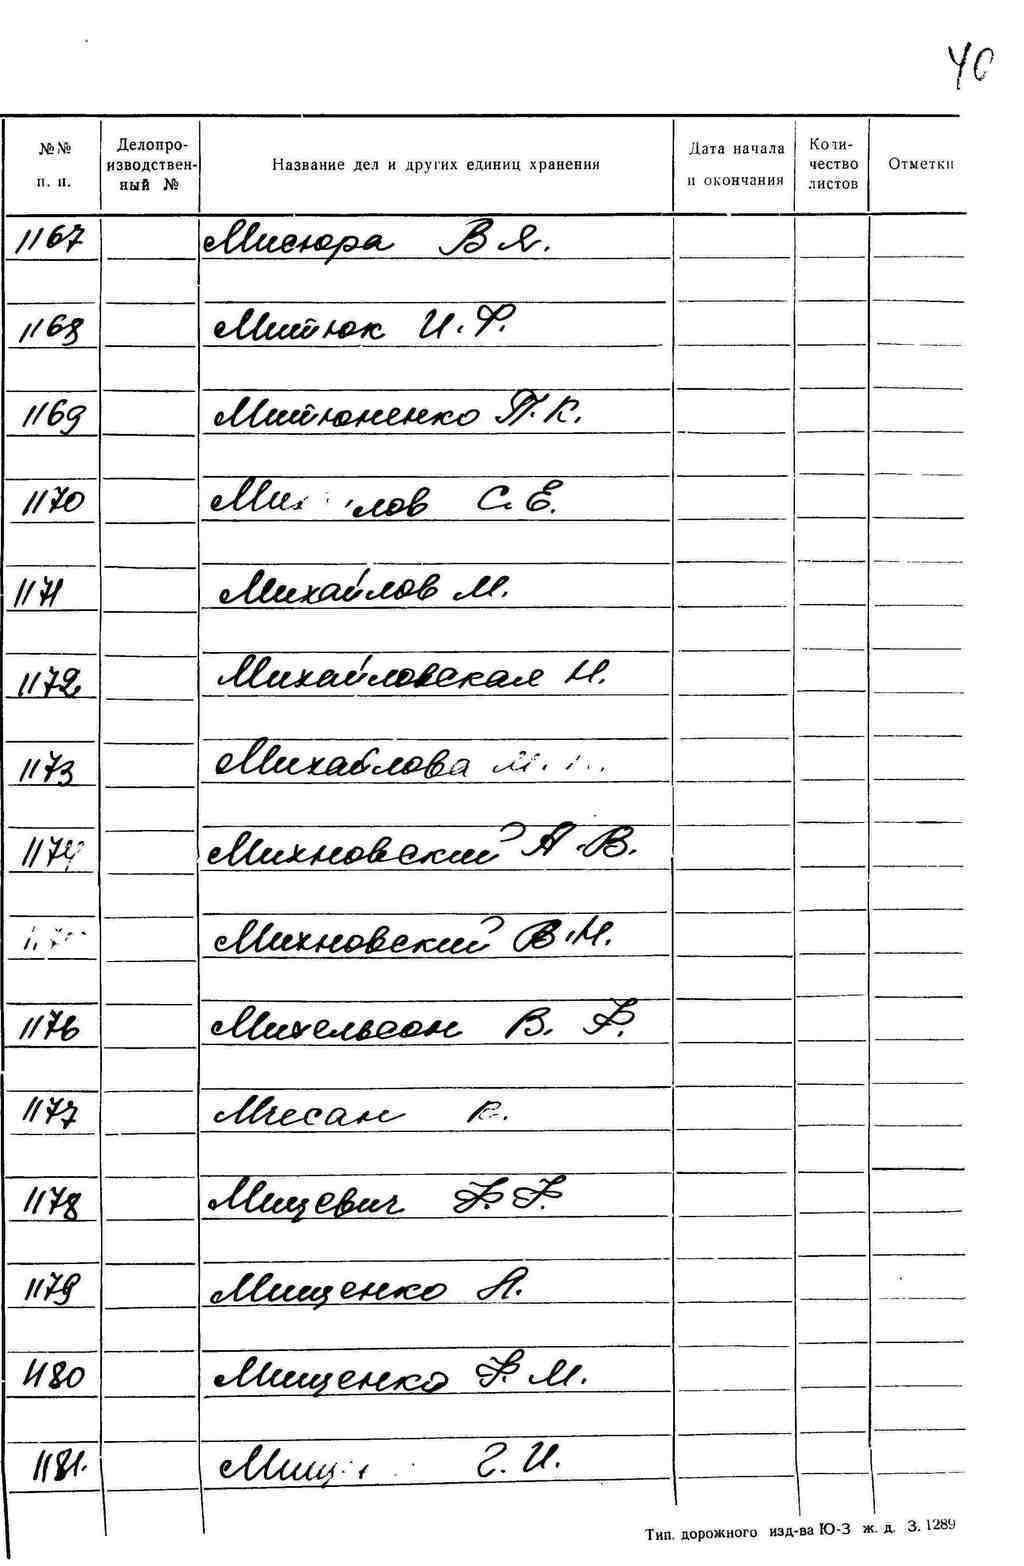 40
№№ п. п. Делопроизводственный № Название дел и других единиц хранения Дата начала и окончания Количество листов Отметки
1167 Мисюра В Я.
1168 Митюк И. Ф.
1169 Митюненко П. К.
1170 С. Е.
1171 Михайлов М.
1172 Михайловская Н.
1173 Михайлова
1174 Михновский А. В.
Михновский В. Н.
1176 Михельсон В. Ф.
1177 К.
1178 Мицевич Ф. Ф.
1179 Мищенко А.
1180 Мищенко Ф. М.
1181. Г. И.
Тип. дорожного изд-ва Ю-З ж. д. З. 1289